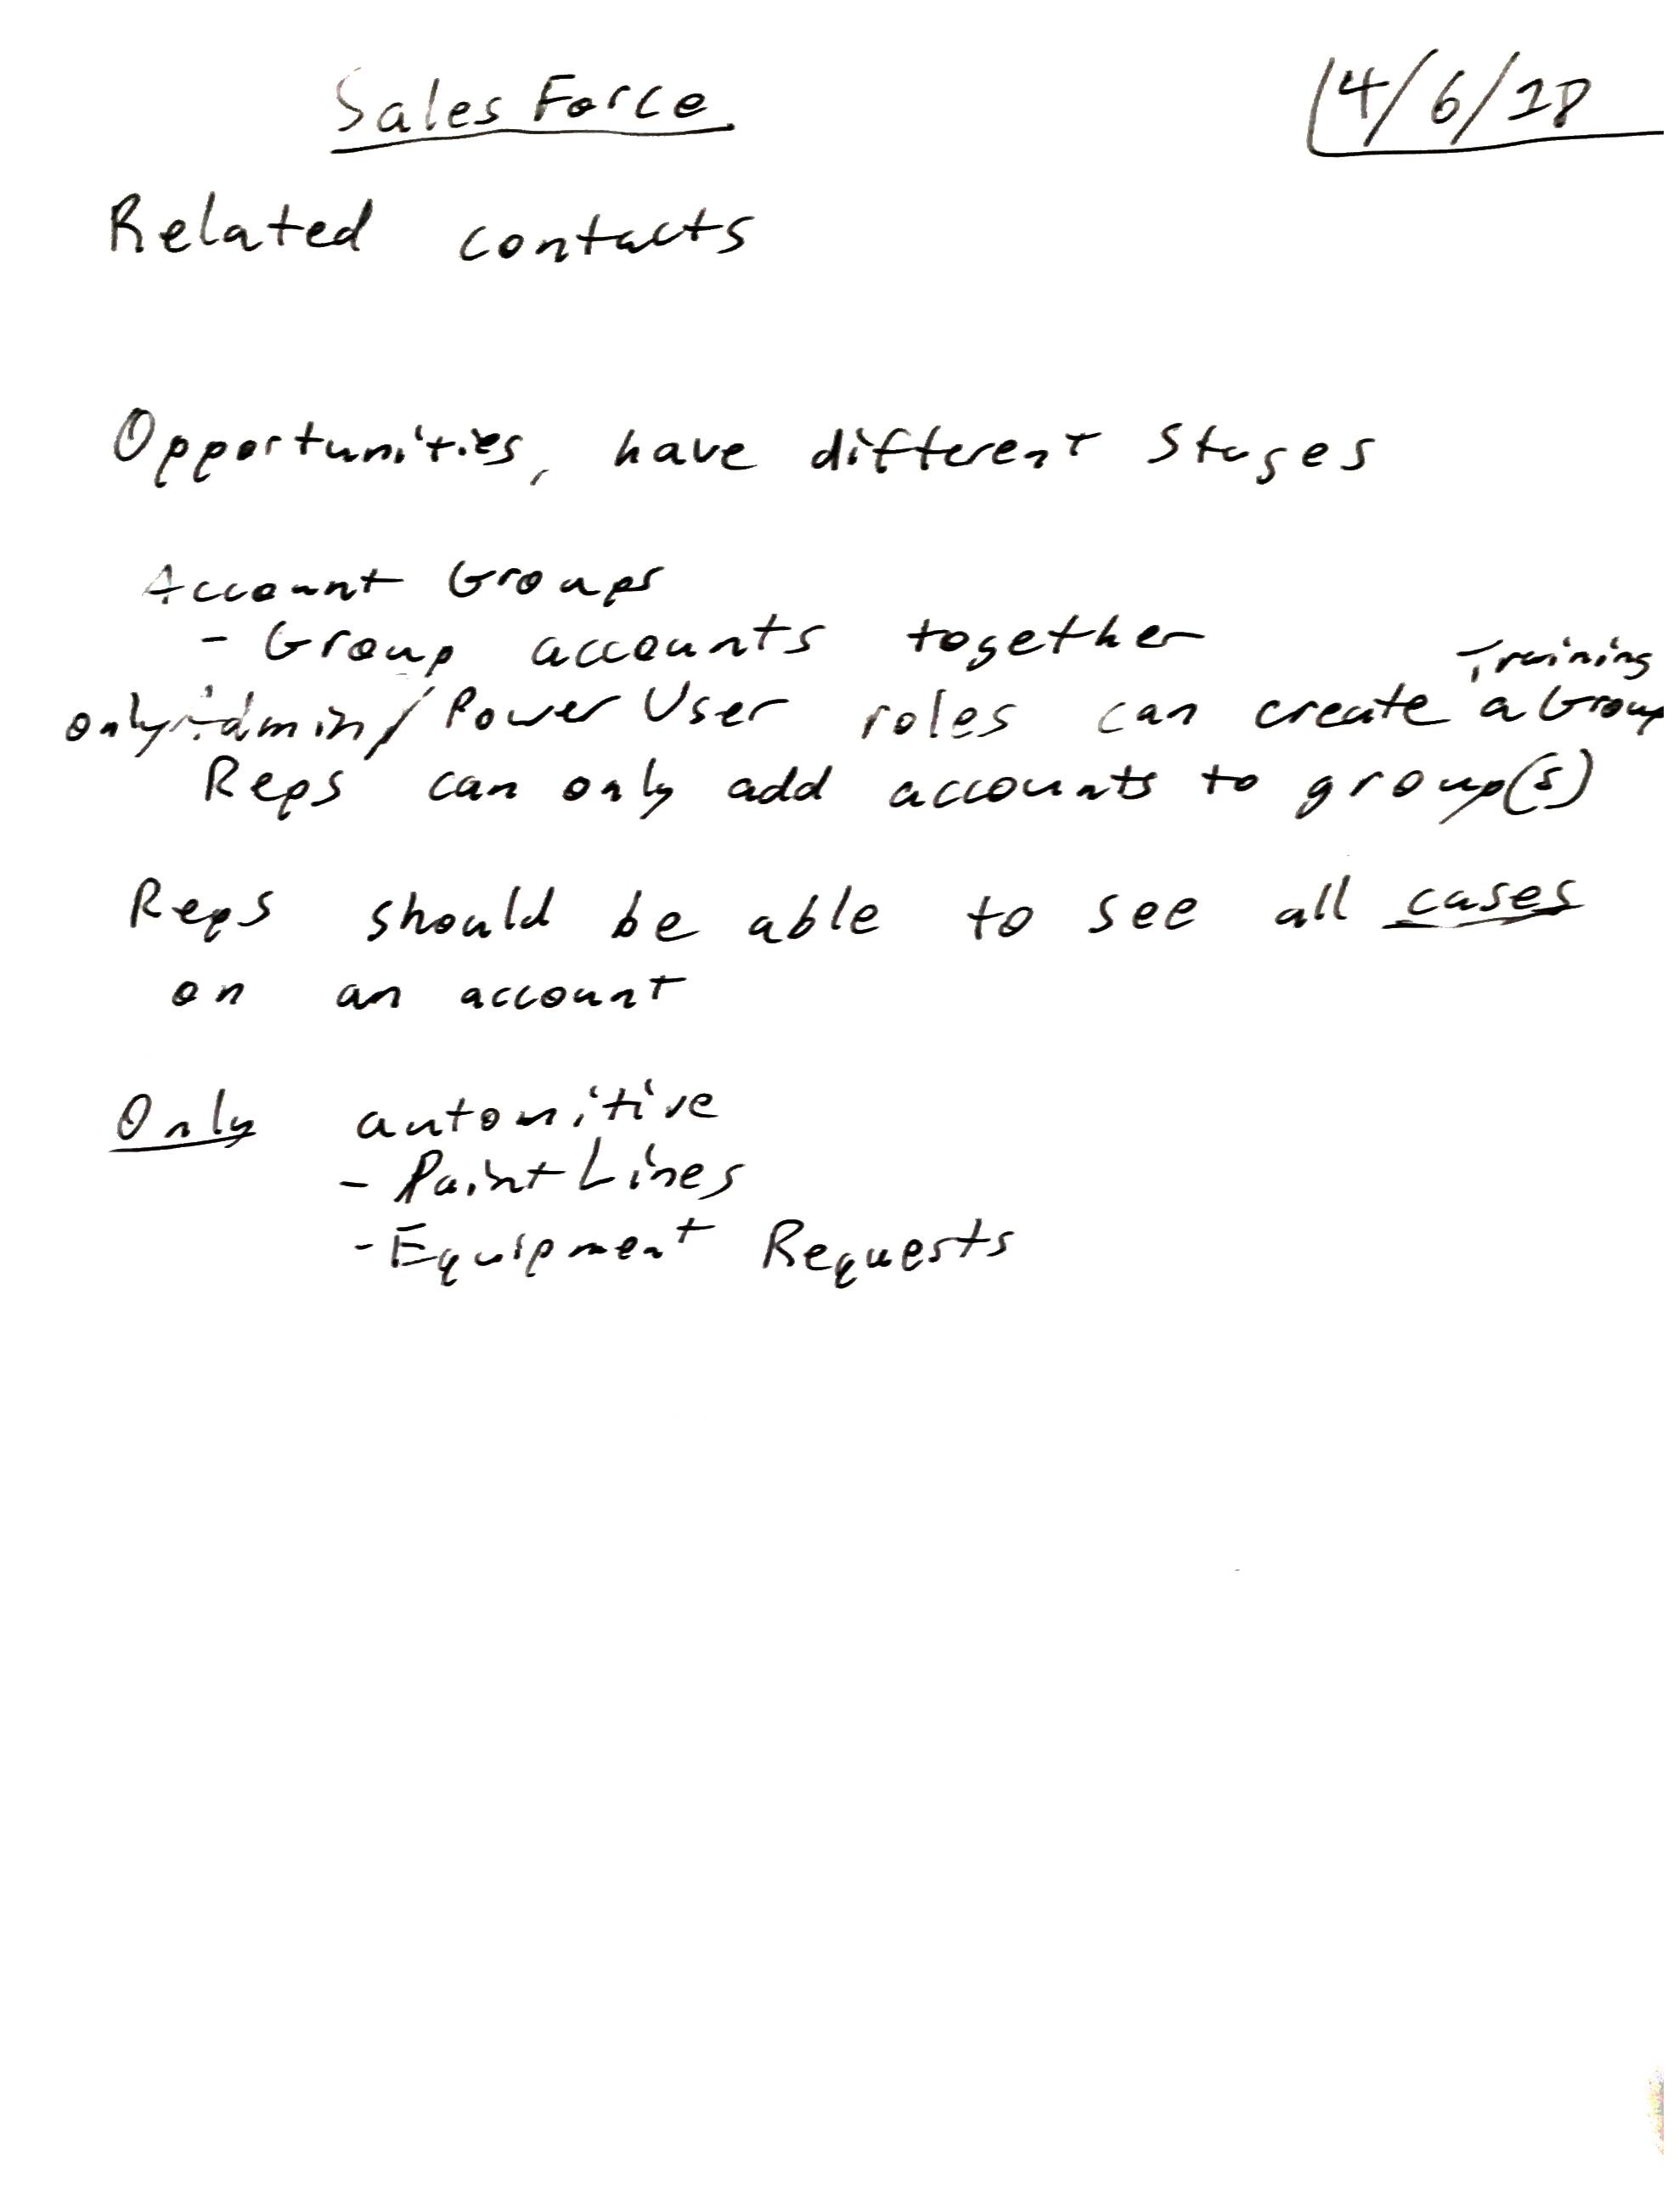 Sales Force
4/6/18
Related contacts
Opportunities, have different stages
Account Groups
- Group accounts together
Training
only Admin/Power User roles can create a Group
Reps can only add accounts to group(s)
Reps should be able to see all cases
on an account
Only automitive
- Paint Lines
- Equipment Requests